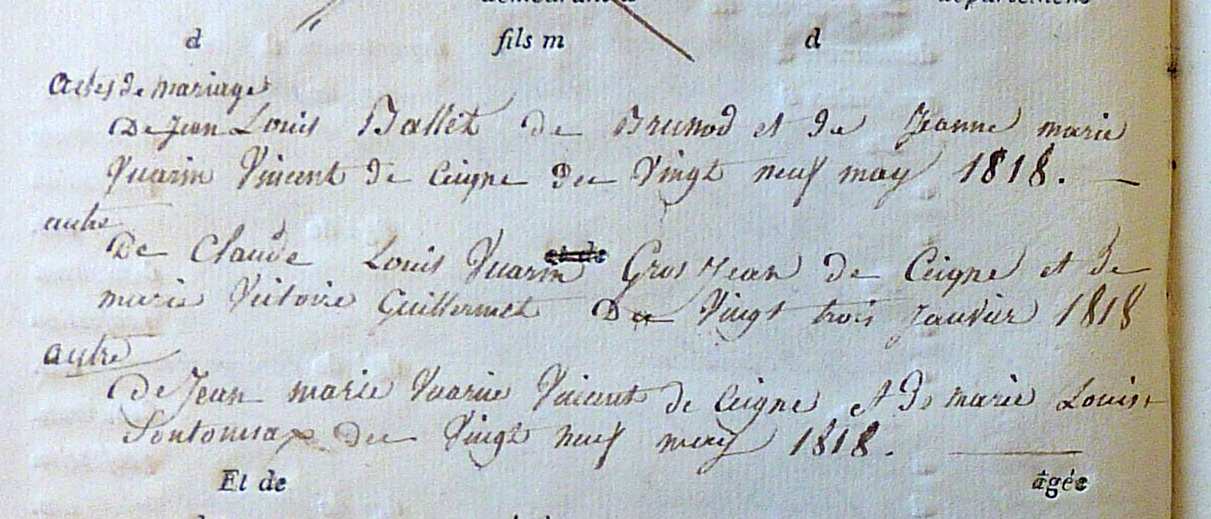 demeurant à département
d fils m d
Actes de mariage
De Jean Louis Ballet de Brunod et de Jeanne marie
Vuarin Vincent de Ceigne du Vingt neuf may 1818. —
autre
De Claude Louis Vuarin et de Gros Jean de Ceigne et de
marie Victoire Guillermet Du Vingt trois Janvier 1818
autre
de Jean marie Vuarin Vincent de Ceigne et de marie Louise
du Vingt neuf may 1818.
Et de âgée